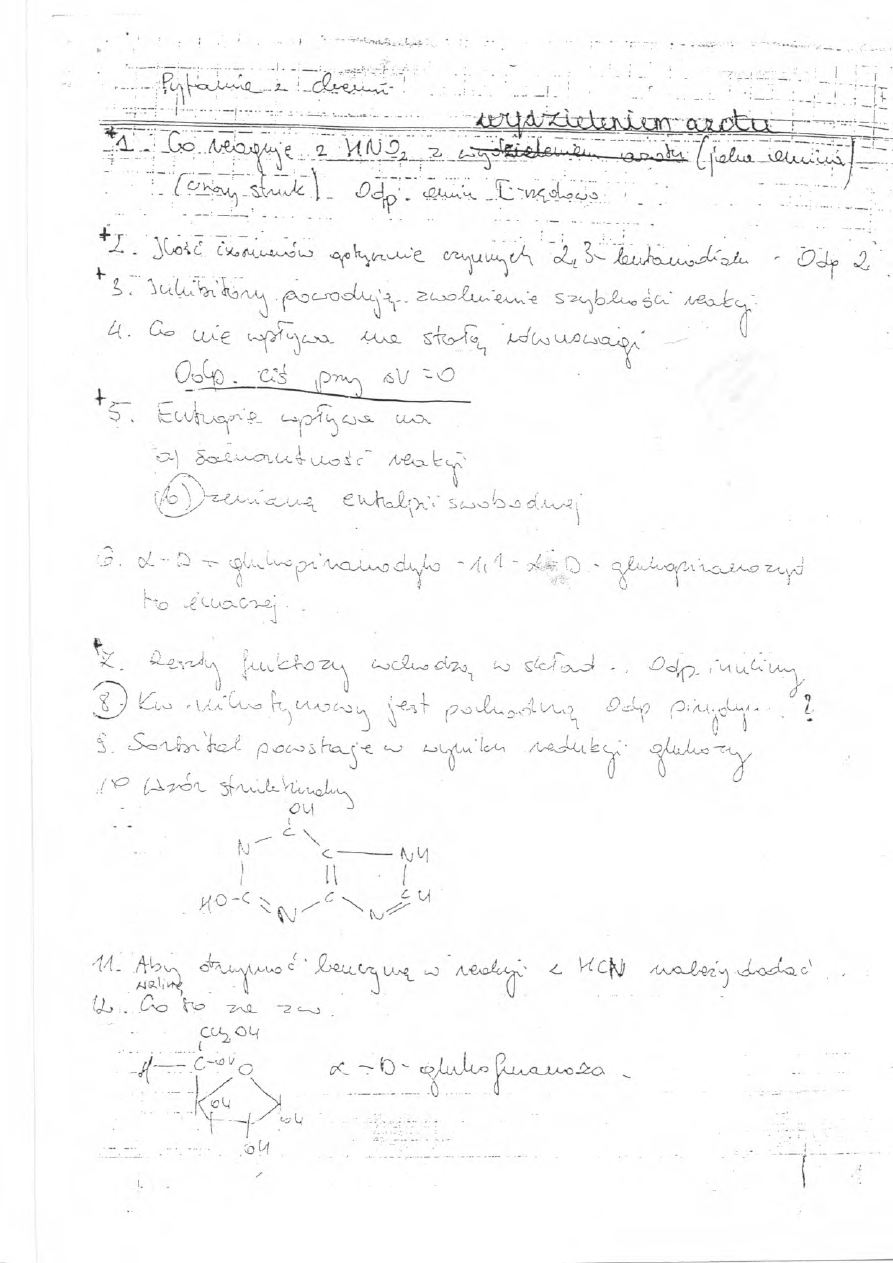 Pytania z chemii
wydzieleniem azotu
+1. Co reaguje z HNO2 z wydzieleniem azotu (jaka amina)
(wzory struk). Odp. amin I-rzędowa
+2. Ilość izomerów optycznie czynnych 2,3-butanodiolu - Odp 2
+3. Inhibitory powodują zwolnienie szybkości reakcji
4. Co nie wpływa na stałą równowagi
Odp. ciś przy ΔV = 0
+5. Entropia wpływa na
a) samorzutność reakcji
(b) zmianę entalpii swobodnej
6. α-D-glukopiranodylo-1,1-α-D-glukopiranozyd
to inaczej..
+7. Reszty fruktozy wchodzą w skład.. Odp. inuliny
(8.) Kw. nikotynowy jest pochodną Odp pirydyn.. ?
9. Sorbitol powstaje w wyniku redukcji glukozy
10 Wzór strukturalny
OH
C
N C NH
HO-C C CH
N N
11. Aby otrzymać leucynę w reakcji z HCN należy dodać ..
walinę
12. Co to za zw.
CH2OH
H - C - OH O α-D-glukofuranoza.
OH OH
OH